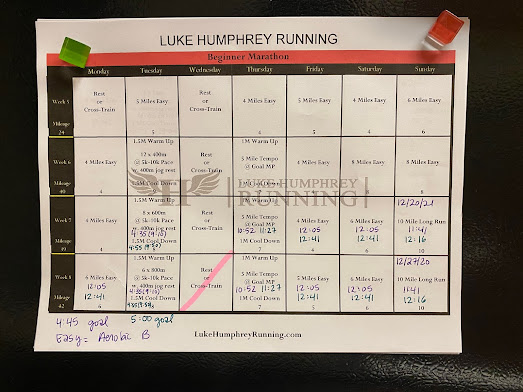 LUKE HUMPHREY RUNNING
Beginner Marathon
Monday Tuesday Wednesday Thursday Friday Saturday Sunday
Week 5
Mileage
24
Rest
or
Cross-Train
5 Miles Easy
5
Rest
or
Cross-Train
4 Miles Easy
4
5 Miles Easy
5
4 Miles Easy
4
6 Miles Easy
6
Week 6
Mileage
40
4 Miles Easy
4
1.5M Warm Up
12 x 400m
@ 5k-10k Pace
w. 400m jog rest
1.5M Cool Down
Rest
or
Cross-Train
1M Warm Up
5 Mile Tempo
@ Goal MP
1M Cool Down
4 Miles Easy
8 Miles Easy
8 Miles Easy
HUMPHREY
RUNNING
Week 7
Mileage
39
4 Miles Easy
4
1.5M Warm Up
8 x 600m
@ 5k-10k Pace
w. 400m jog rest
1.5M Cool Down
Rest
or
Cross-Train
1M Warm Up
5 Mile Tempo
@ Goal MP
10:52 11:27
1M Cool Down
7
4 Miles Easy
12:05
12:41
6 Miles Easy
12:05
12:41
12/20/21
10 Mile Long Run
11:41
12:16
10
Week 8
Mileage
42
6 Miles Easy
12:05
12:41
6
1.5M Warm Up
6 x 800m
@ 5k-10k Pace
w. 400m jog rest
1.5M Cool Down
Rest
or
Cross-Train
1M Warm Up
5 Mile Tempo
@ Goal MP
10:52 11:27
1M Cool Down
7
5 Miles Easy
12:05
12:41
5
6 Miles Easy
12:05
12:41
6
12/27/20
10 Mile Long Run
11:41
12:16
10
4:45 goal 5:00 goal
Easy = Aerobic B
LukeHumphreyRunning.com